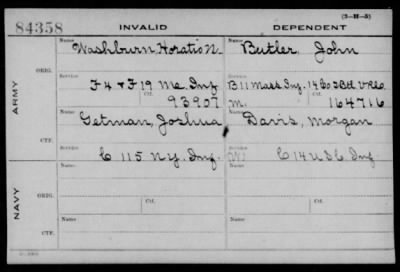 (3-H-5)
84358 INVALID DEPENDENT
Name Washburn, Horatio N. Name Butler, John
ARMY ORIG. Service F 4 & F 19 Me. Inf Service B 11 Mass. Inf. 14 Co 2 Btl V R C
Ctf. 93907 M. Ctf. 164716
Name Getman, Joshua Name Davis, Morgan
CTF. Service C 115 N.Y. Inf. C 14 U S C Inf
NAVY ORIG. Name Name
Service Ctf. Service Ctf.
CTF. Name Name